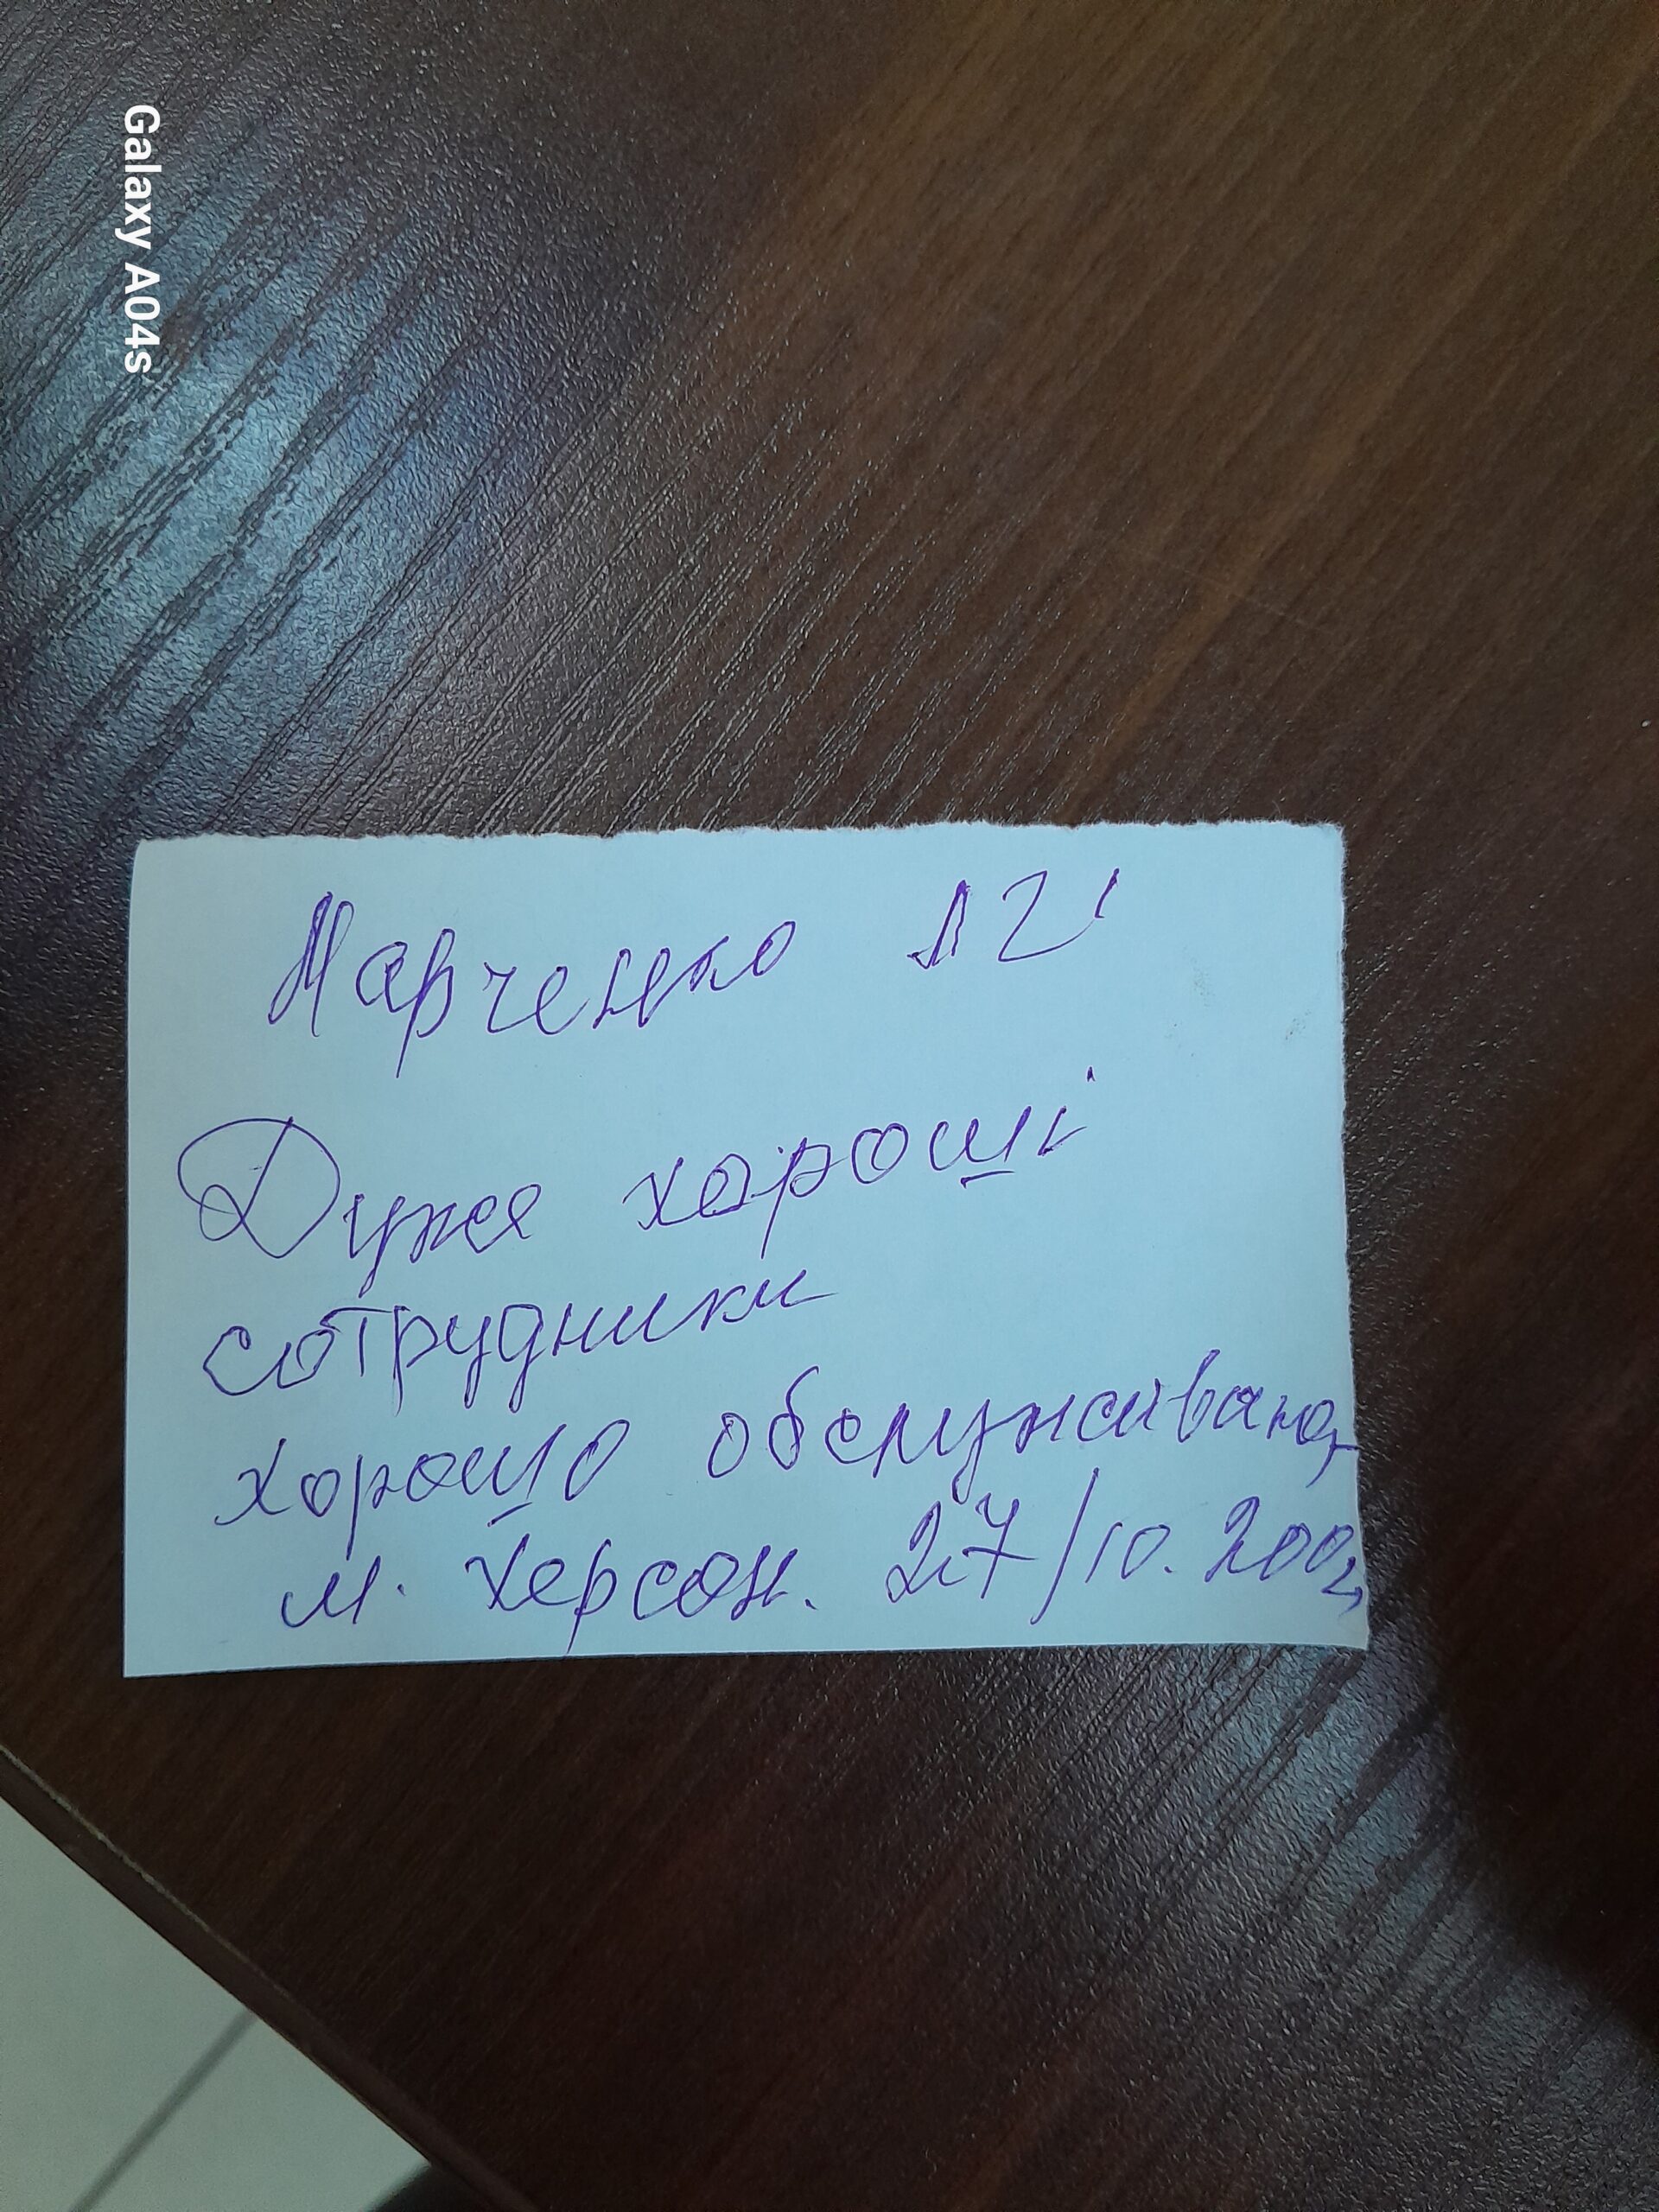 Galaxy A04s
Марченко Л І
Дуже хороші
сотрудники
хорошо обслуживают
м. Херсон. 27/10.2002